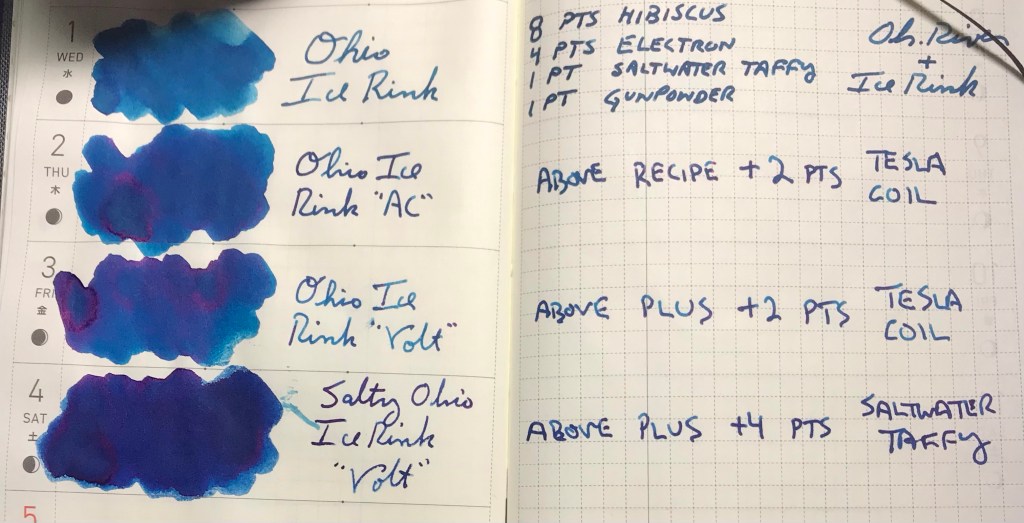 1
WED
水
Ohio
Ice Rink
8 PTS HIBISCUS
4 PTS ELECTRON
1 PT SALTWATER TAFFY
1 PT GUNPOWDER
Oh. River
+
Ice Rink
2
THU
木
Ohio Ice
Rink "AC"
ABOVE RECIPE + 2 PTS TESLA
COIL
3
FRI
金
Ohio Ice
Rink "Volt"
ABOVE PLUS +2 PTS TESLA
COIL
4
SAT
土
Salty Ohio
Ice Rink
"Volt"
ABOVE PLUS +4 PTS SALTWATER
TAFFY
5